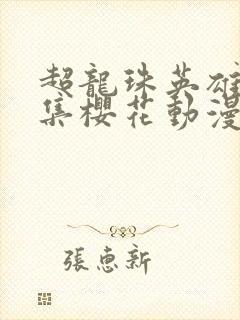 超龍珠英雄
集櫻花動漫
張惠新